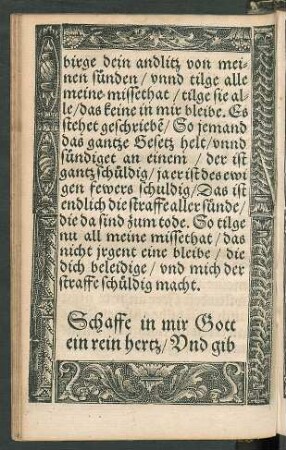 birge dein andlitz von mei-
nen sünden / vnnd tilge alle
meine missethat / tilge sie al-
le / das keine in mir bleibe. Es
stehet geschriebẽ / So jemand
das gantze Gesetz helt / vnnd
sündiget an einem / der ist
gantz schüldig / ja er ist des ewi
gen fewers schuldig / Das ist
endlich die straffe aller sünde /
die da sind zum tode. So tilge
nu all meine missethat / das
nicht jrgent eine bleibe / die
dich beleidige / vnd mich der
straffe schüldig macht.
Schaffe in mir Gott
ein rein hertz / Vnd gib